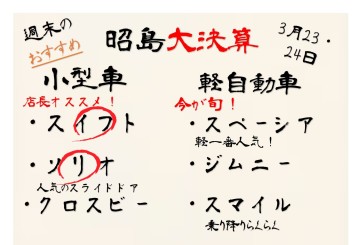 週末の
おすすめ
昭島大決算
3月23・
24日
小型車
店長オススメ！
・スイフト
・ソリオ
人気のスライドドア
・クロスビー
軽自動車
今が旬！
・スペーシア
軽一番人気！
・ジムニー
・スマイル
乗り降りらくらく